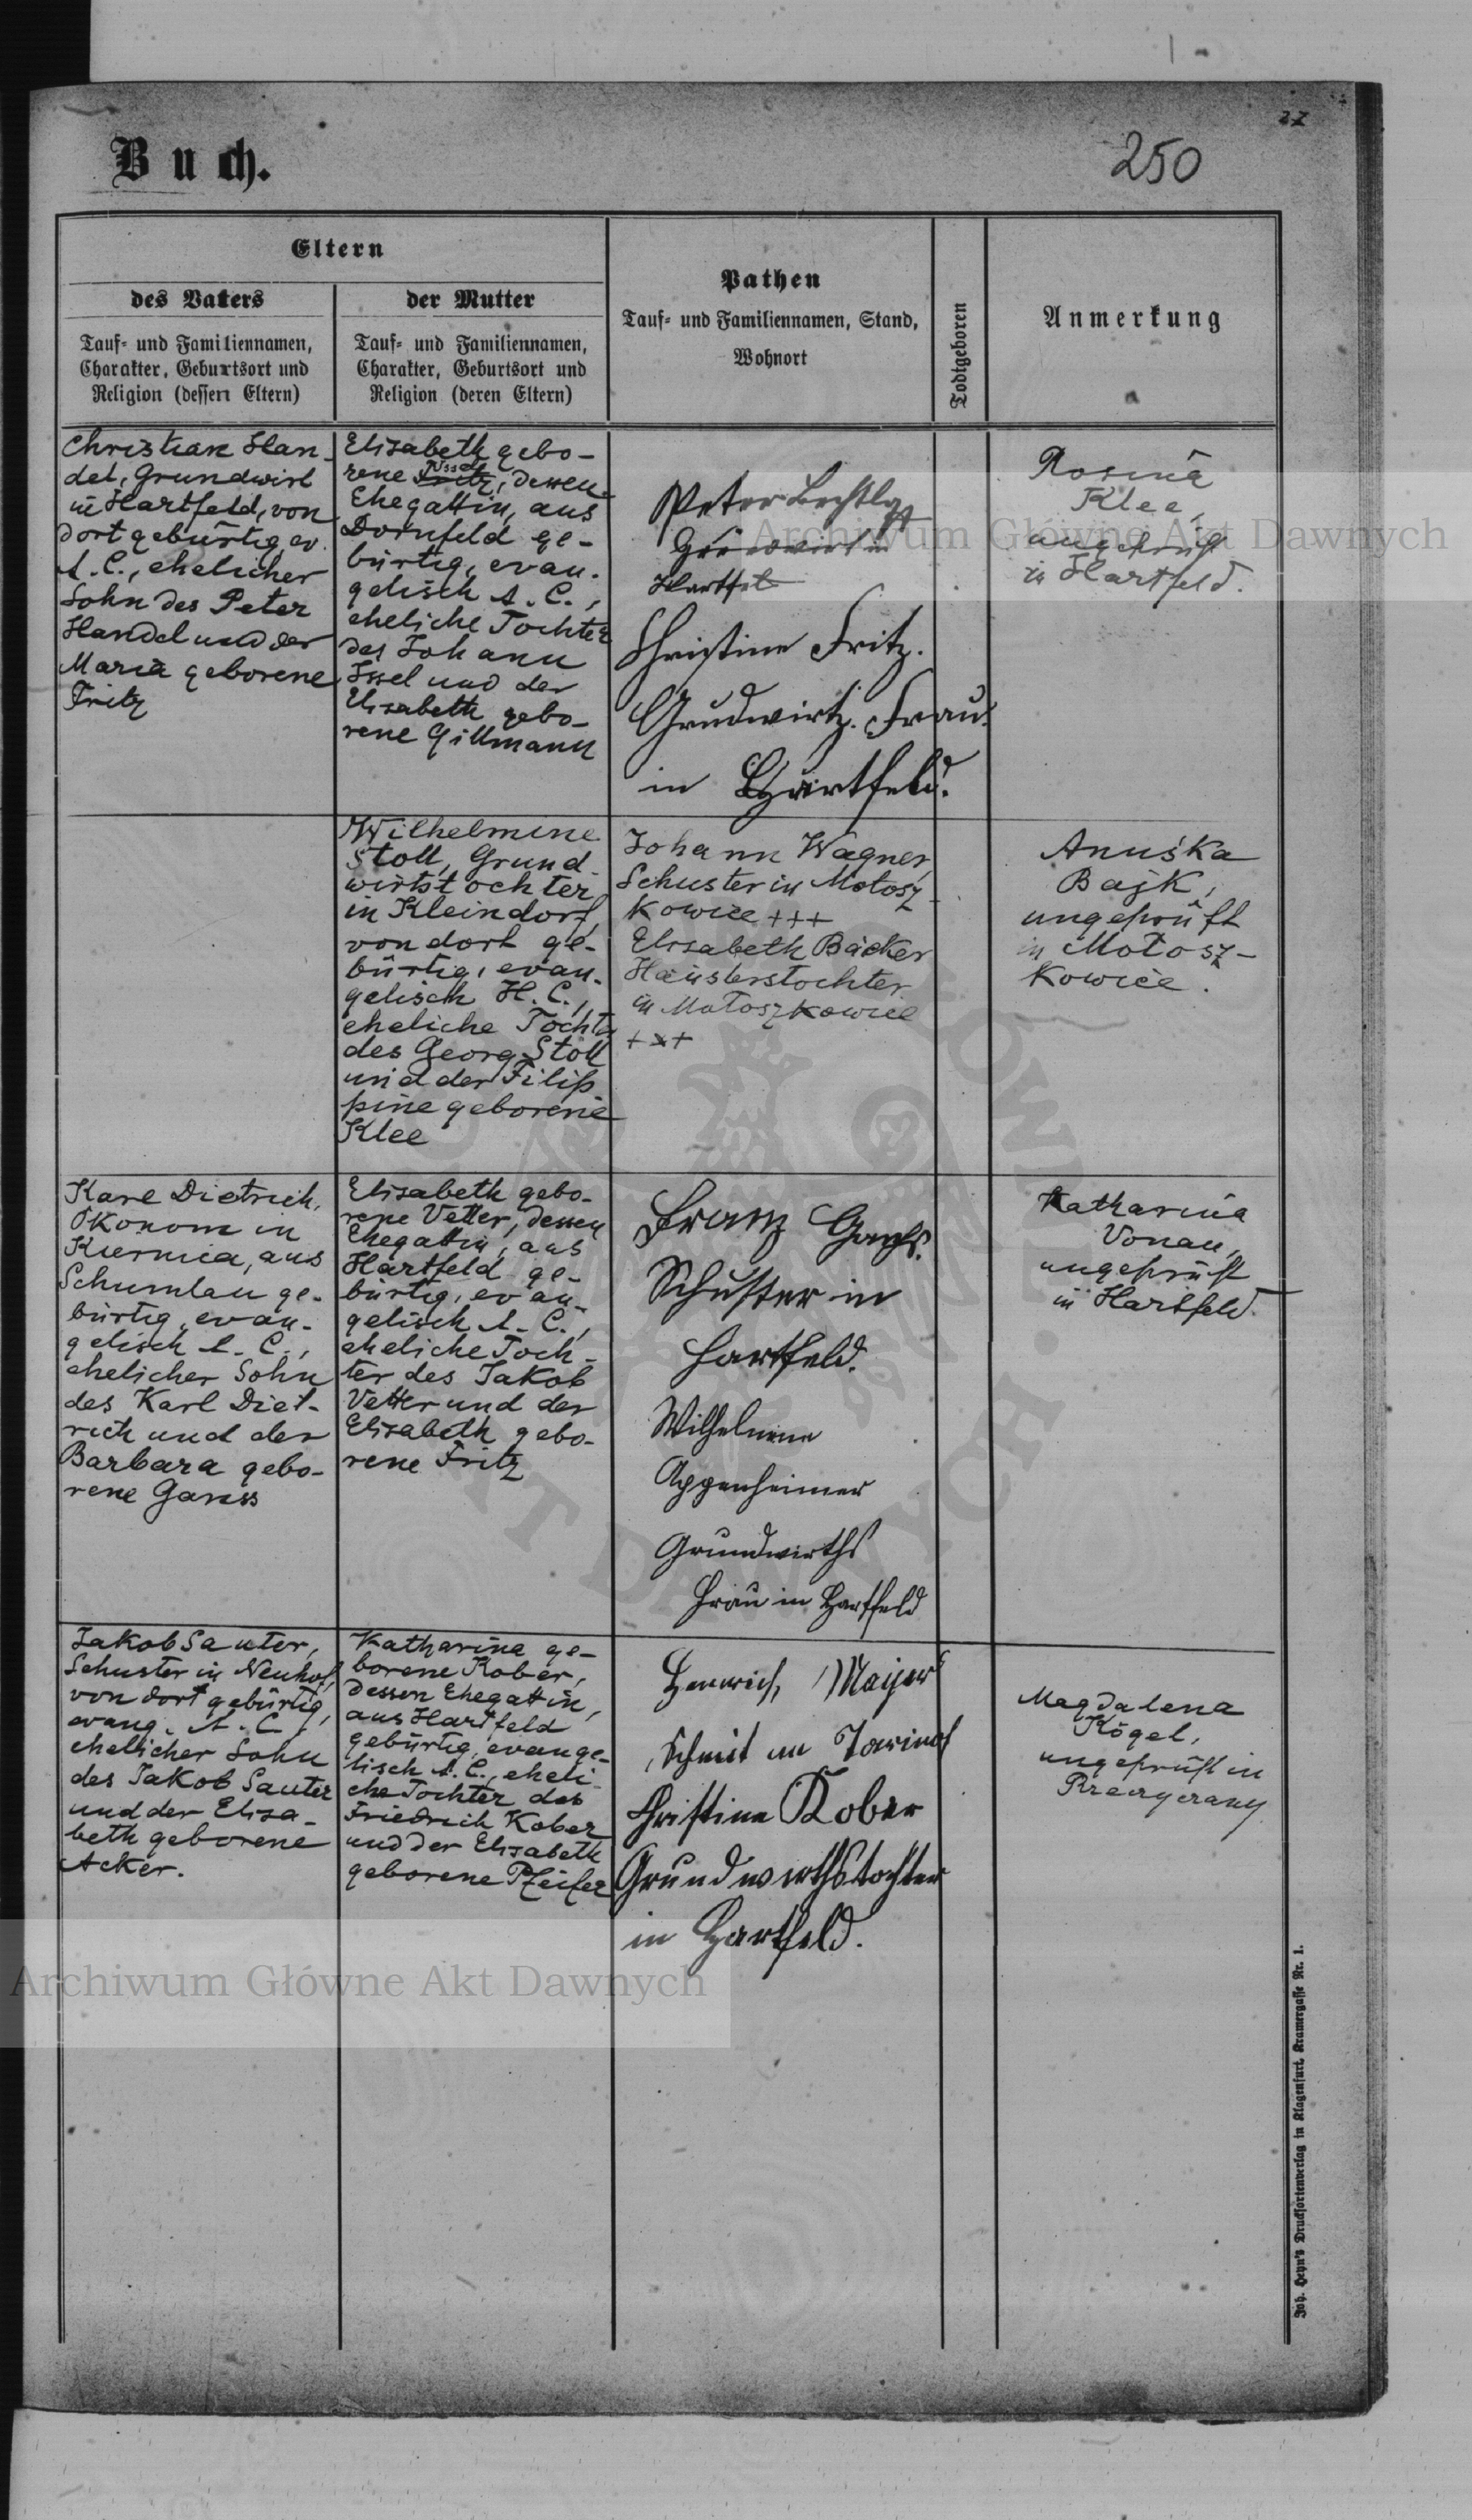 27
Buch.
250
Eltern
des Vaters
Tauf- und Familiennamen,
Charakter, Geburtsort und
Religion (dessen Eltern)
der Mutter
Tauf- und Familiennamen,
Charakter, Geburtsort und
Religion (deren Eltern)
Pathen
Tauf- und Familiennamen, Stand,
Wohnort
Todtgeboren
Anmerkung
Christian Han-
del, Grundwirt
in Hartfeld, von
dort gebürtig, ev.
A. C., ehelicher
Sohn des Peter
Handel und der
Maria geborene
Fritz
Elisabeth gebo-
rene Issel, dessen
Ehegattin, aus
Dornfeld ge-
bürtig, evan-
gelisch A. C.,
eheliche Tochter
des Johann
Issel und der
Elisabeth gebo-
rene Gillmann
Peter
Hartfel
Christine Fritz.
Grudwirtz. Frau.
in Hartfeld.
Rosina
Klee,
ungeprüft
in Hartfeld.
Wilhelmine
Stoll, Grund-
wirtstochter
in Kleindorf,
von dort ge-
bürtig, evan-
gelisch H. C.,
eheliche Tocht
des Georg Stoll
und der Filip
pine geborene
Klee
Johann Wagner,
Schuster in Mołosz-
kowice +++
Elisabeth Bäcker
Häuslerstochter
in Mołoszkowice
+++
Anuśka
Bajk,
ungeprüft
in Mołosz-
kowice.
Karl Dietrich,
Ökonom in
Kiernica, aus
Schumlau ge-
bürtig, evan-
gelisch A. C.,
ehelicher Sohn
des Karl Diet-
rich und der
Barbara gebo-
rene Ganss
Elisabeth gebo-
rene Vetter, dessen
Ehegattin, aus
Hartfeld ge-
bürtig, evan-
gelisch A. C.,
eheliche Toch-
ter des Jakob
Vetter und der
Elisabeth gebo-
rene Fritz
Franz
Schuster in
Hartfeld.
Wilhelmine
Appenheimer
Grundwirths
Frau in Hartfeld
Katharina
Vonau,
ungeprüft
in Hartfeld.
Jakob Sauter,
Schuster in Neuhof,
von dort gebürtig,
evang. A. C.,
ehelicher Sohn
des Jakob Sauter
und der Elisa-
beth geborene
Acker.
Katharina ge-
borene Kober,
dessen Ehegattin,
aus Hartfeld
gebürtig, evange-
lisch A. C., eheli-
che Tochter des
Friedrich Kober
und der Elisabeth
geborene Pfeifer
Henrich Majer
Schmit
Christine Kober
Grundwirthstochter
in Hartfeld.
Magdalena
Kögel,
ungeprüft in
Archiwum Główne Akt Dawnych
Archiwum Główne Akt Dawnych
Joh. Heyn's Drucksortenverlag in Klagenfurt, Kramergasse Nr. 1.